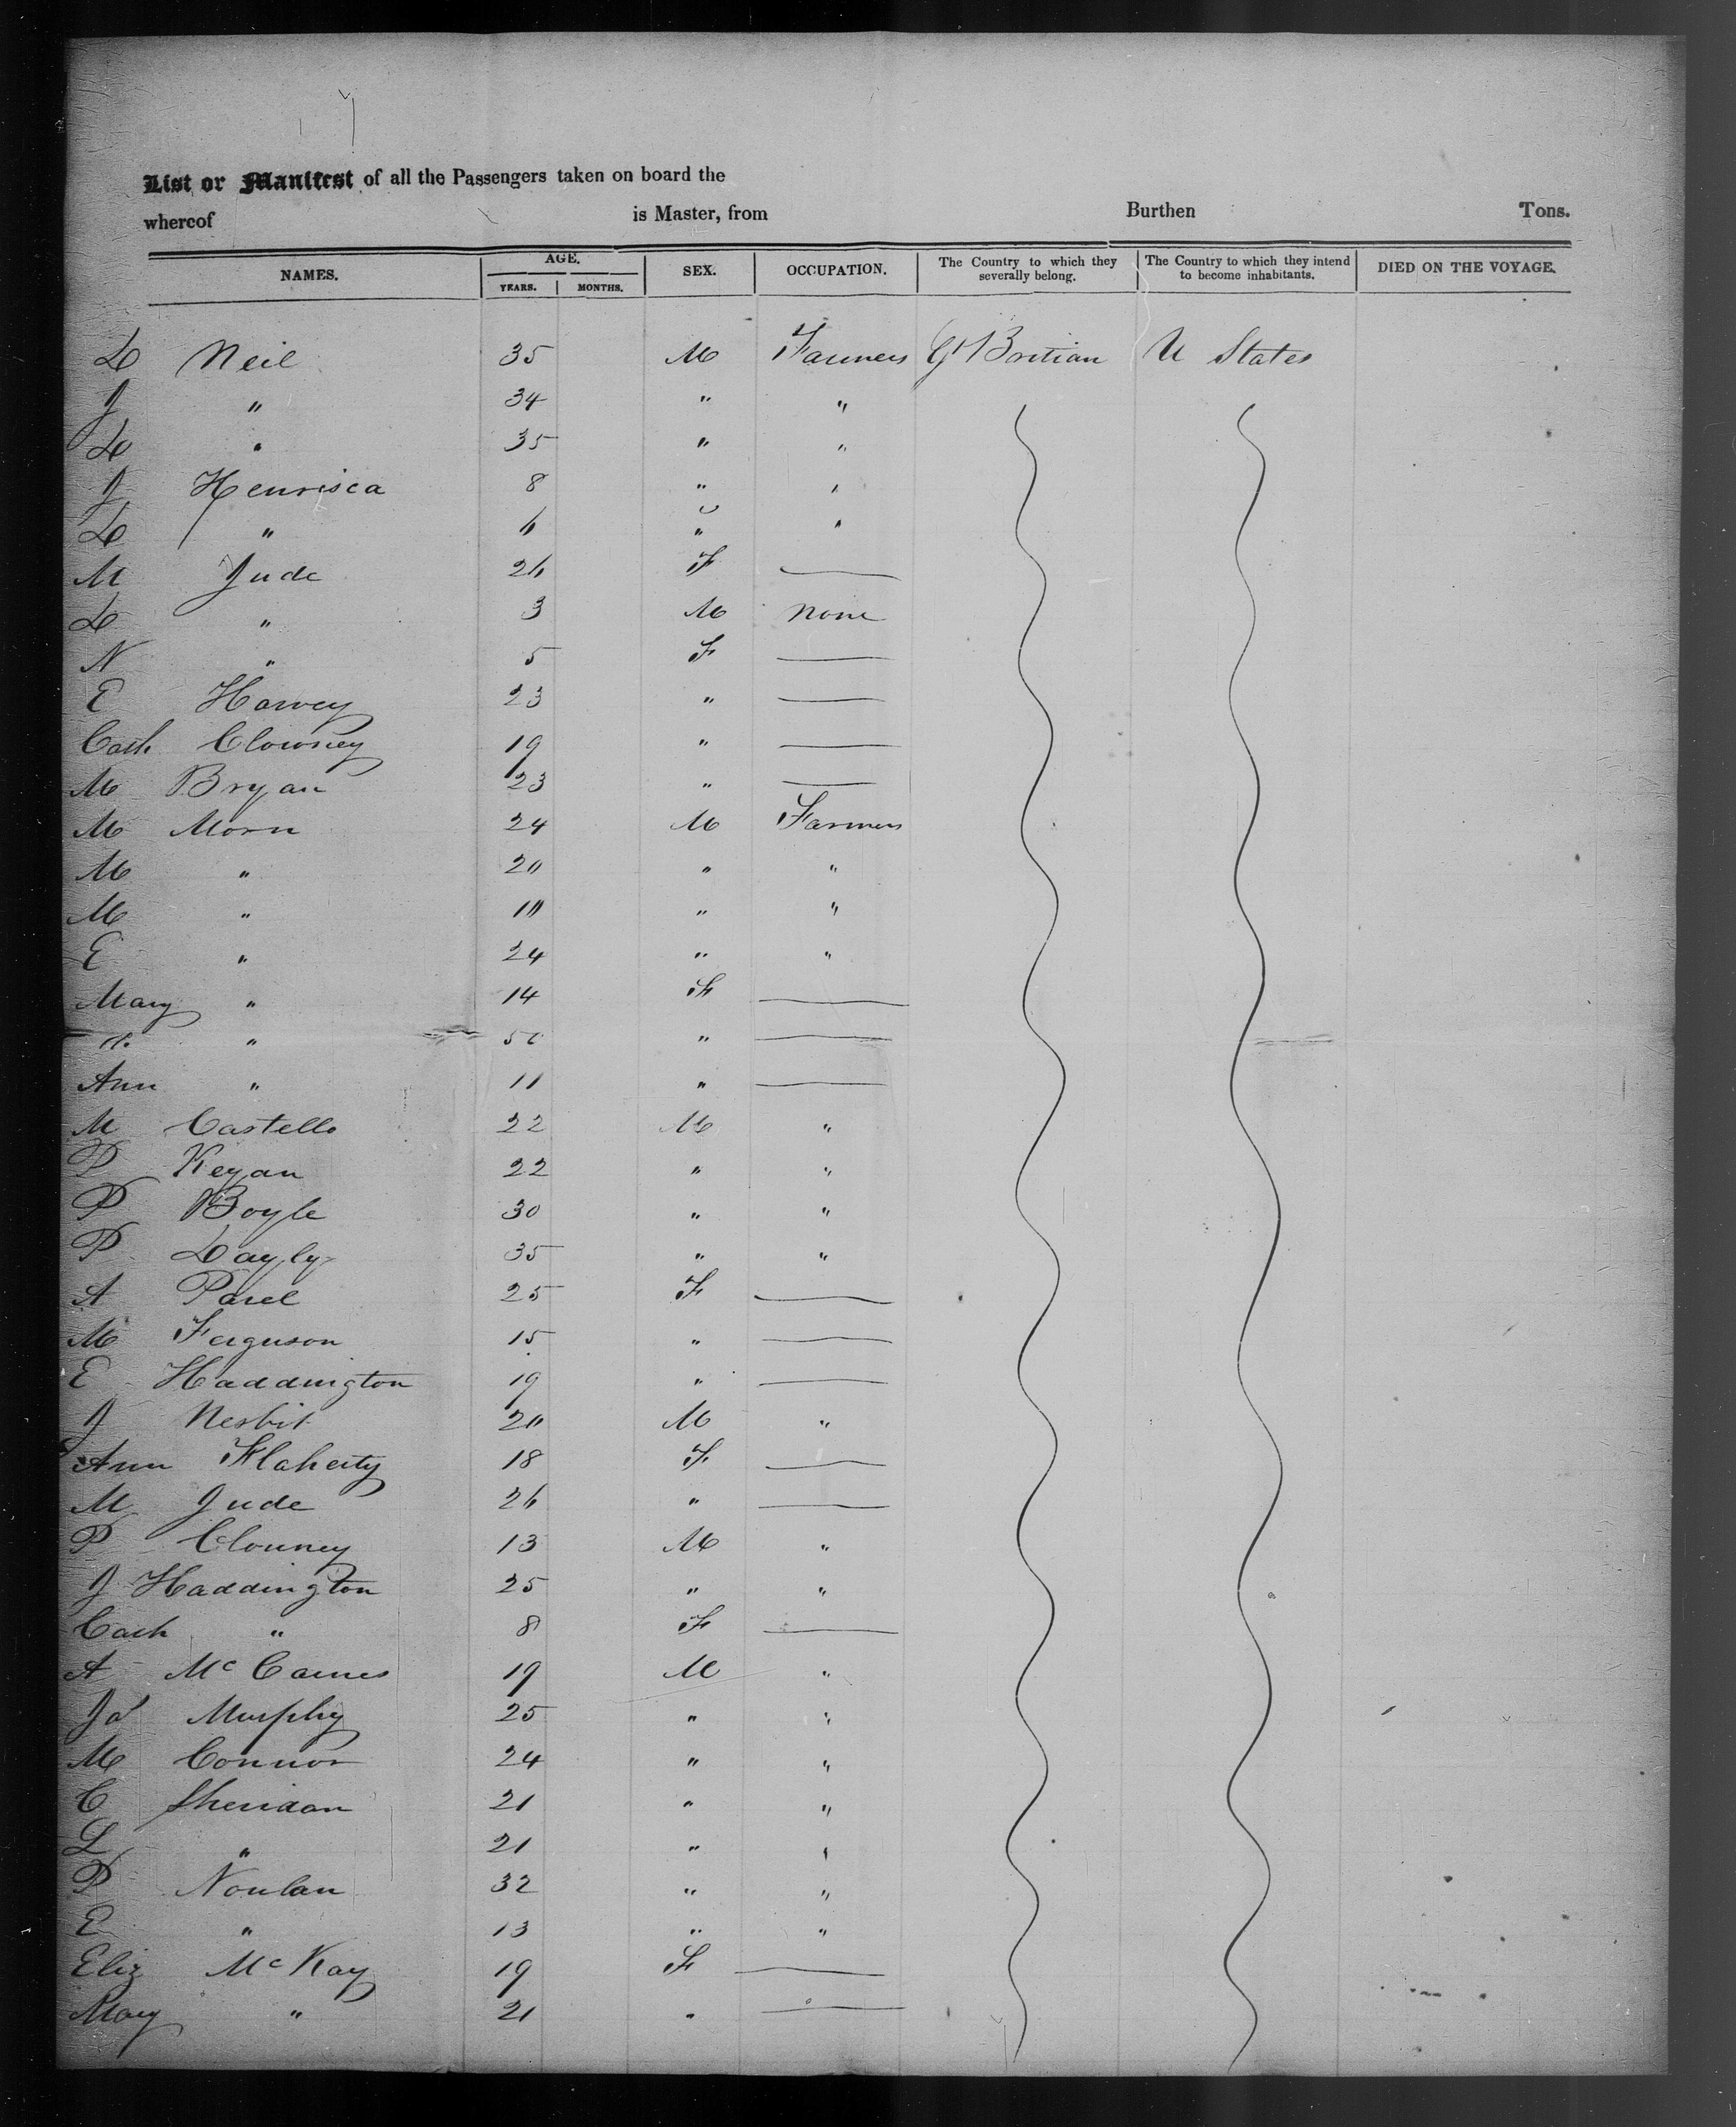 List or Manifest of all the Passengers taken on board the
whereof is Master, from Burthen Tons.
NAMES. AGE. YEARS. MONTHS. SEX. OCCUPATION. The Country to which they severally belong. The Country to which they intend to become inhabitants. DIED ON THE VOYAGE.
D Neil 35 M Farmers Gt Britian U States
J " 34 " "
D " 35 " "
J Henrisca 8 " "
D " 6 " "
M Jude 26 F
D " 3 M none
N " 5 F
E Harvey 23 "
Cath Clowney 19 "
M Bryan 23 "
M Morn 24 M Farmers
M " 20 " "
M " 10 " "
E " 24 " "
Mary " 14 F
" 50 "
Ann " 11 "
M Castello 22 M "
P Keyan 22 " "
P Boyle 30 " "
P Dayly 35 " "
A Parel 25 F
M Ferguson 15 "
E Haddington 19 "
J Nesbit 20 M "
Ann Flaherty 18 F
M Jude 26 "
P Clouney 13 M "
J Haddington 25 " "
Cath " 8 F
A Mc Carnes 19 M "
Jas Murphy 25 " "
M Connor 24 " "
C Sheridan 21 " "
L " 21 " "
P Noulan 32 " "
E " 13 " "
Eliz Mc Kay 19 F
Mary " 21 "